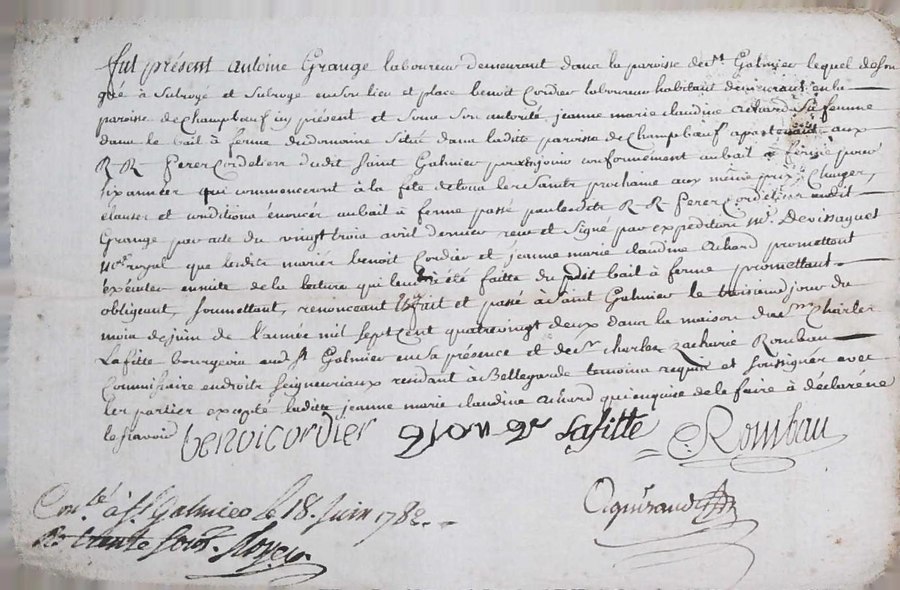 fut présent antoine Grange laboureur demeurant dans la paroisse de St Galmier lequel de son
gré à subrogé et subroge en son lieu et place benoit Cordier laboureur habitant demeurant en la
paroisse de Champbœuf icy présent et sous son autorité jeanne marie claudine achard sa femme
dans le bail à ferme du domaine situé dans laditte paroisse de Champbœuf apartenant aux
R R Perer Cordelier dudit saint Galmier pour jouir conformement au bail à ferme pour
six années qui commenceront à la fete de toua les Sants prochaine aux même prix, Charger,
clauser et conditions énoncés au bail à ferme passé par lesdits R-R Perer Cordelier audit
Grange par acte du vingt trois avril dernier reçu et signé par expedition Me Devissaguet
nre royal que lesdits mariér benoit Cordier et jeanne marie claudine achard promettant
exécuter ensuite de la lecture qui leur a été faitte du dit bail à ferme promettant
obligeant, soumettant, renonceant &a fait et passé à Saint Galmier le
moia de juin de l'année mil sept cent quatre vingt deux dans la maison du sr Charles
Lafitte bourgeois aud St Galmier en sa présence et de sr charles zacharie Rombau
Commissaire en droits seigneuriaux rendant à Bellegarde temoins requis et soussigner avec
les partier excepté laditte jeanne marie claudine achard qui enquise de le faire à déclaré ne
le scavoir benoicordier Lafitte C. Rombau
Conlé à St Galmier le 18. juin 1782.
Rs trente sols. Noyer